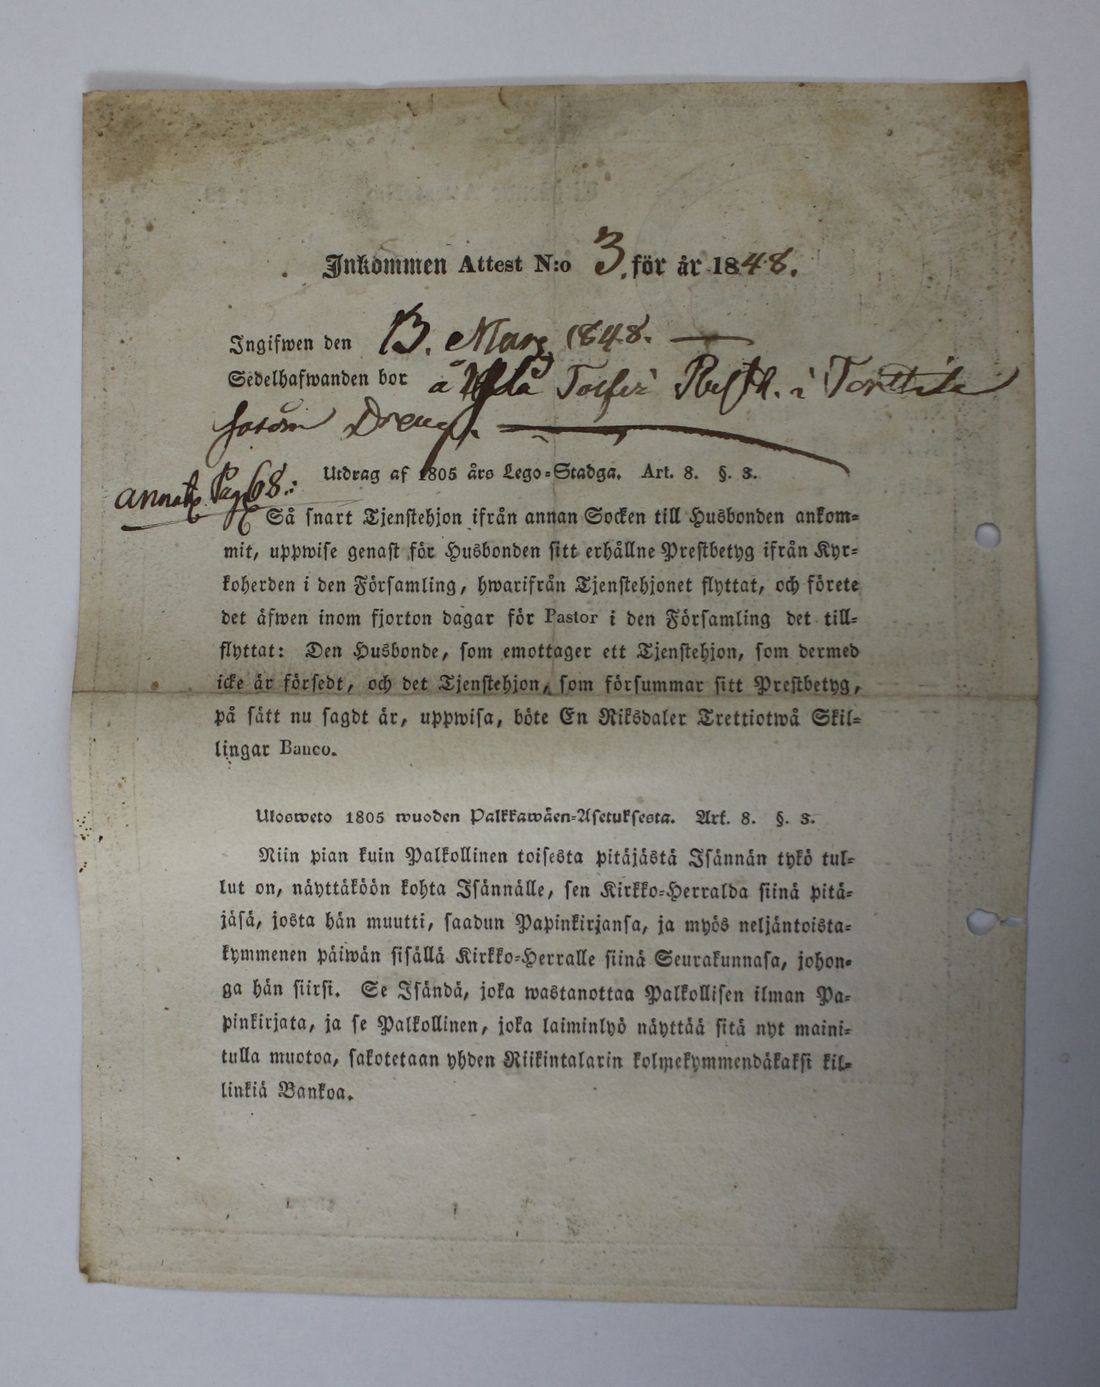 Inkommen Attest N:o 3. för år 1848.
Ingifwen den 13. Mars 1848.
Sedelhafwanden bor å i
såsom Dreng.
annat. Pag. 68.:
Utdrag af 1805 års Lego-Stadga. Art. 8. §. 3.
Så snart Tjenstehjon ifrån annan Socken till Husbonden ankom-
mit, uppwise genast för Husbonden sitt erhållne Prestbetyg ifrån Kyr-
koherden i den Församling, hwarifrån Tjenstehjonet flyttat, och förete
det äfwen inom fjorton dagar för Pastor i den Församling det till-
flyttat: Den Husbonde, som emottager ett Tjenstehjon, som dermed
icke är försedt, och det Tjenstehjon, som försummar sitt Prestbetyg,
på sätt nu sagdt är, uppwisa, böte En Riksdaler Trettiotwå Skil-
lingar Banco.
Ulosweto 1805 wuoden Palkkawäen-Asetuksesta. Art. 8. §. 3.
Niin pian kuin Palkollinen toisesta pitäjästä Isännän tykö tul-
lut on, näyttäköön kohta Isännälle, sen Kirkko-Herralda siinä pitä-
jäsä, josta hän muutti, saadun Papinkirjansa, ja myös neljäntoista-
kymmenen päiwän sisällä Kirkko-Herralle siinä Seurakunnasa, johon-
ga hän siirsi. Se Isändä, joka wastanottaa Palkollisen ilman Pa-
pinkirjata, ja se Palkollinen, joka laiminlyö näyttää sitä nyt maini-
tulla muotoa, sakotetaan yhden Riikintalarin kolmekymmendäkaksi kil-
linkiä Bankoa.